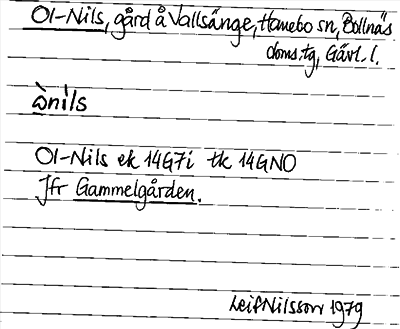 Ol-Nils, gård å Vallsänge, Hanebo sn, Bollnäs
doms.tg, Gävl. l.
ὼnìls
Ol-Nils ek 14G7i tk 14GNO
Jfr Gammelgården.
Leif Nilsson 1979